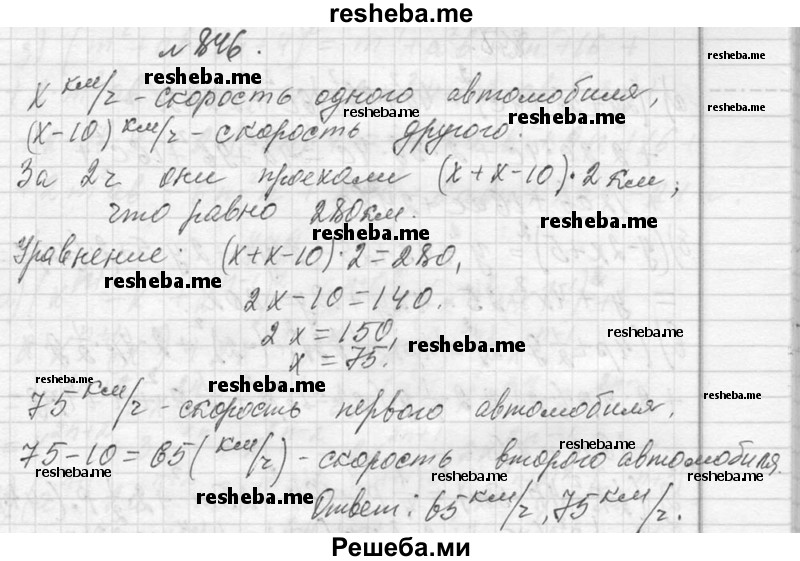 resheba.me
№846.
resheba.me
resheba.me
x км/ч - скорость одного автомобиля,
resheba.me
resheba.me
resheba.me
(x-10) км/ч - скорость другого.
За 2ч они проехали (x+x-10)·2км,
что равно 280км.
resheba.me
resheba.me
Уравнение: (x+x-10)·2=280,
resheba.me
2x-10=140.
2x=150,
resheba.me
resheba.me
x=75.
resheba.me
resheba.me
resheba.me
75 км/ч - скорость первого автомобиля.
resheba.me
75-10=65(км/ч) - скорость второго автомобиля.
resheba.me
resheba.me
resheba.me
Ответ: 65 км/ч, 75 км/ч.
Решеба.ми